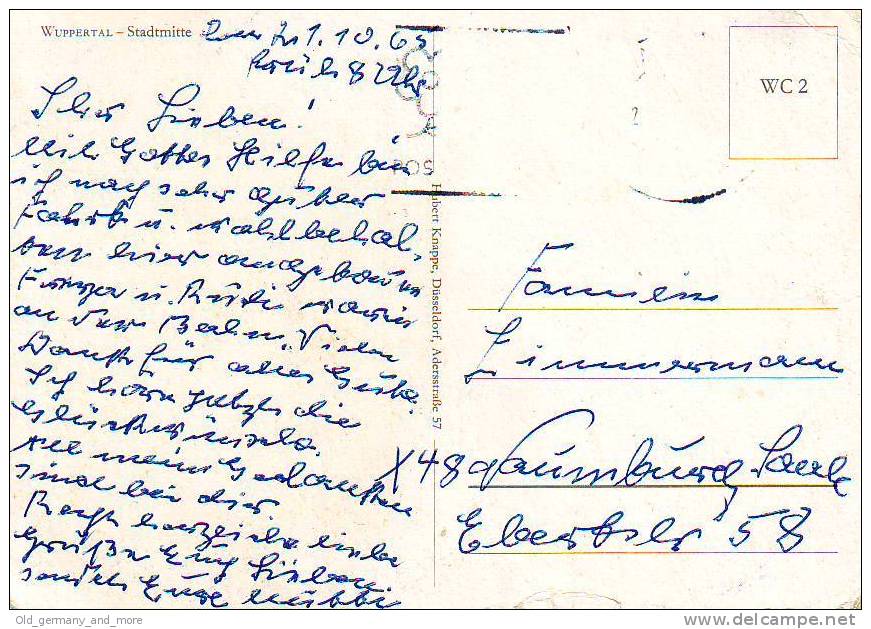 WUPPERTAL – Stadtmitte
1.10.65
früh 8 Uhr
Ihr Lieben!
Mit Gottes Hilfe bin
ich nach sehr guter
Fahrt u. wohlbehal-
ten hier angekommen
u. Ruth waren
an der Bahn. Vielen
Dank für alles Gute.
Ich höre jetzt die
All meine Gedanken
sind bei Dir.
Recht herzliche liebe
Grüße Euch Lieben
sendet Eure Mutti
Hubert Knappe, Düsseldorf, Adersstraße 57
WC 2
Familie
Zimmermann
X 48 Naumburg Saale
Ebertstr 58
Old_germany_and_more
delcampe.net